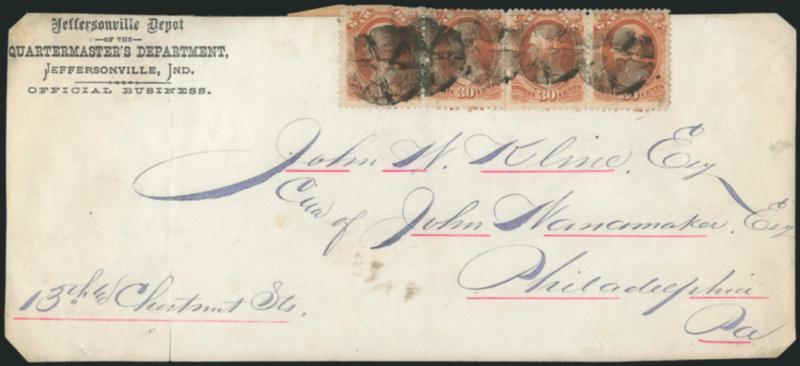 Jeffersonville Depot
OF THE
QUARTERMASTER'S DEPARTMENT,
JEFFERSONVILLE, IND.
OFFICIAL BUSINESS.
30 CENTS
30 CENTS
CENTS
John W. Kline, Esq
Care of John Wanamaker, Esq
Philadelphia
13th & Chestnut Sts.
Pa